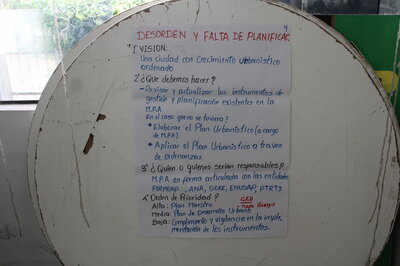 4
DESORDEN Y FALTA DE PLANIFICAC
1° VISION:
Una ciudad con Crecimiento Urbanístico
ordenado.
2° ¿Que debemos hacer?
- Revisar y actualizar los instrumentos de
gestión y planificación existentes en la
M.P.A.
En el caso que no se tuviera?
* Elaborar el Plan Urbanístico (a cargo
de M.P.A)
* Aplicar el Plan Urbanístico a traves
de ordenanzas.
3° ¿Quien o quienes serian responsables?
M.P.A en forma articulada con las entidades
FORPRAP, ANA, GORE, EMUSAP, PTRTS
4° Orden de Prioridad? GRD
Alta: Plan Maestro + Mapa Riesgos
Media: Plan de Desarrollo Urbano
Baja: Cumplimiento y vigilancia en la imple_
mentación de los instrumentos.